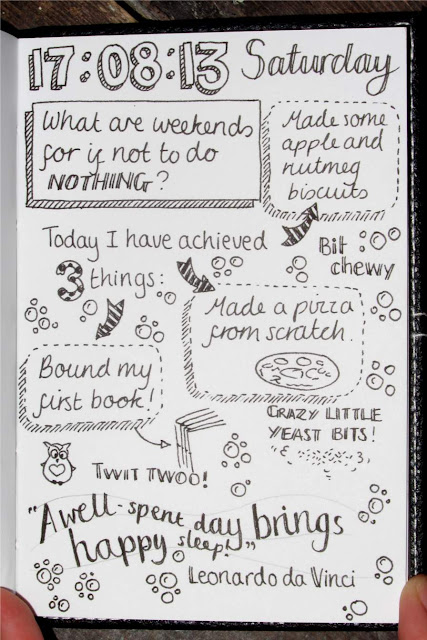 17:08:13 Saturday
What are weekends
for if not to do
NOTHING?
Made some
apple and
nutmeg
biscuits
Bit
chewy
Today I have achieved
3 things:
Made a pizza
from scratch.
CRAZY LITTLE
YEAST BITS!
Bound my
first book!
TWIT TWOO!
"A well-spent day brings
happy sleep!"
Leonardo da Vinci